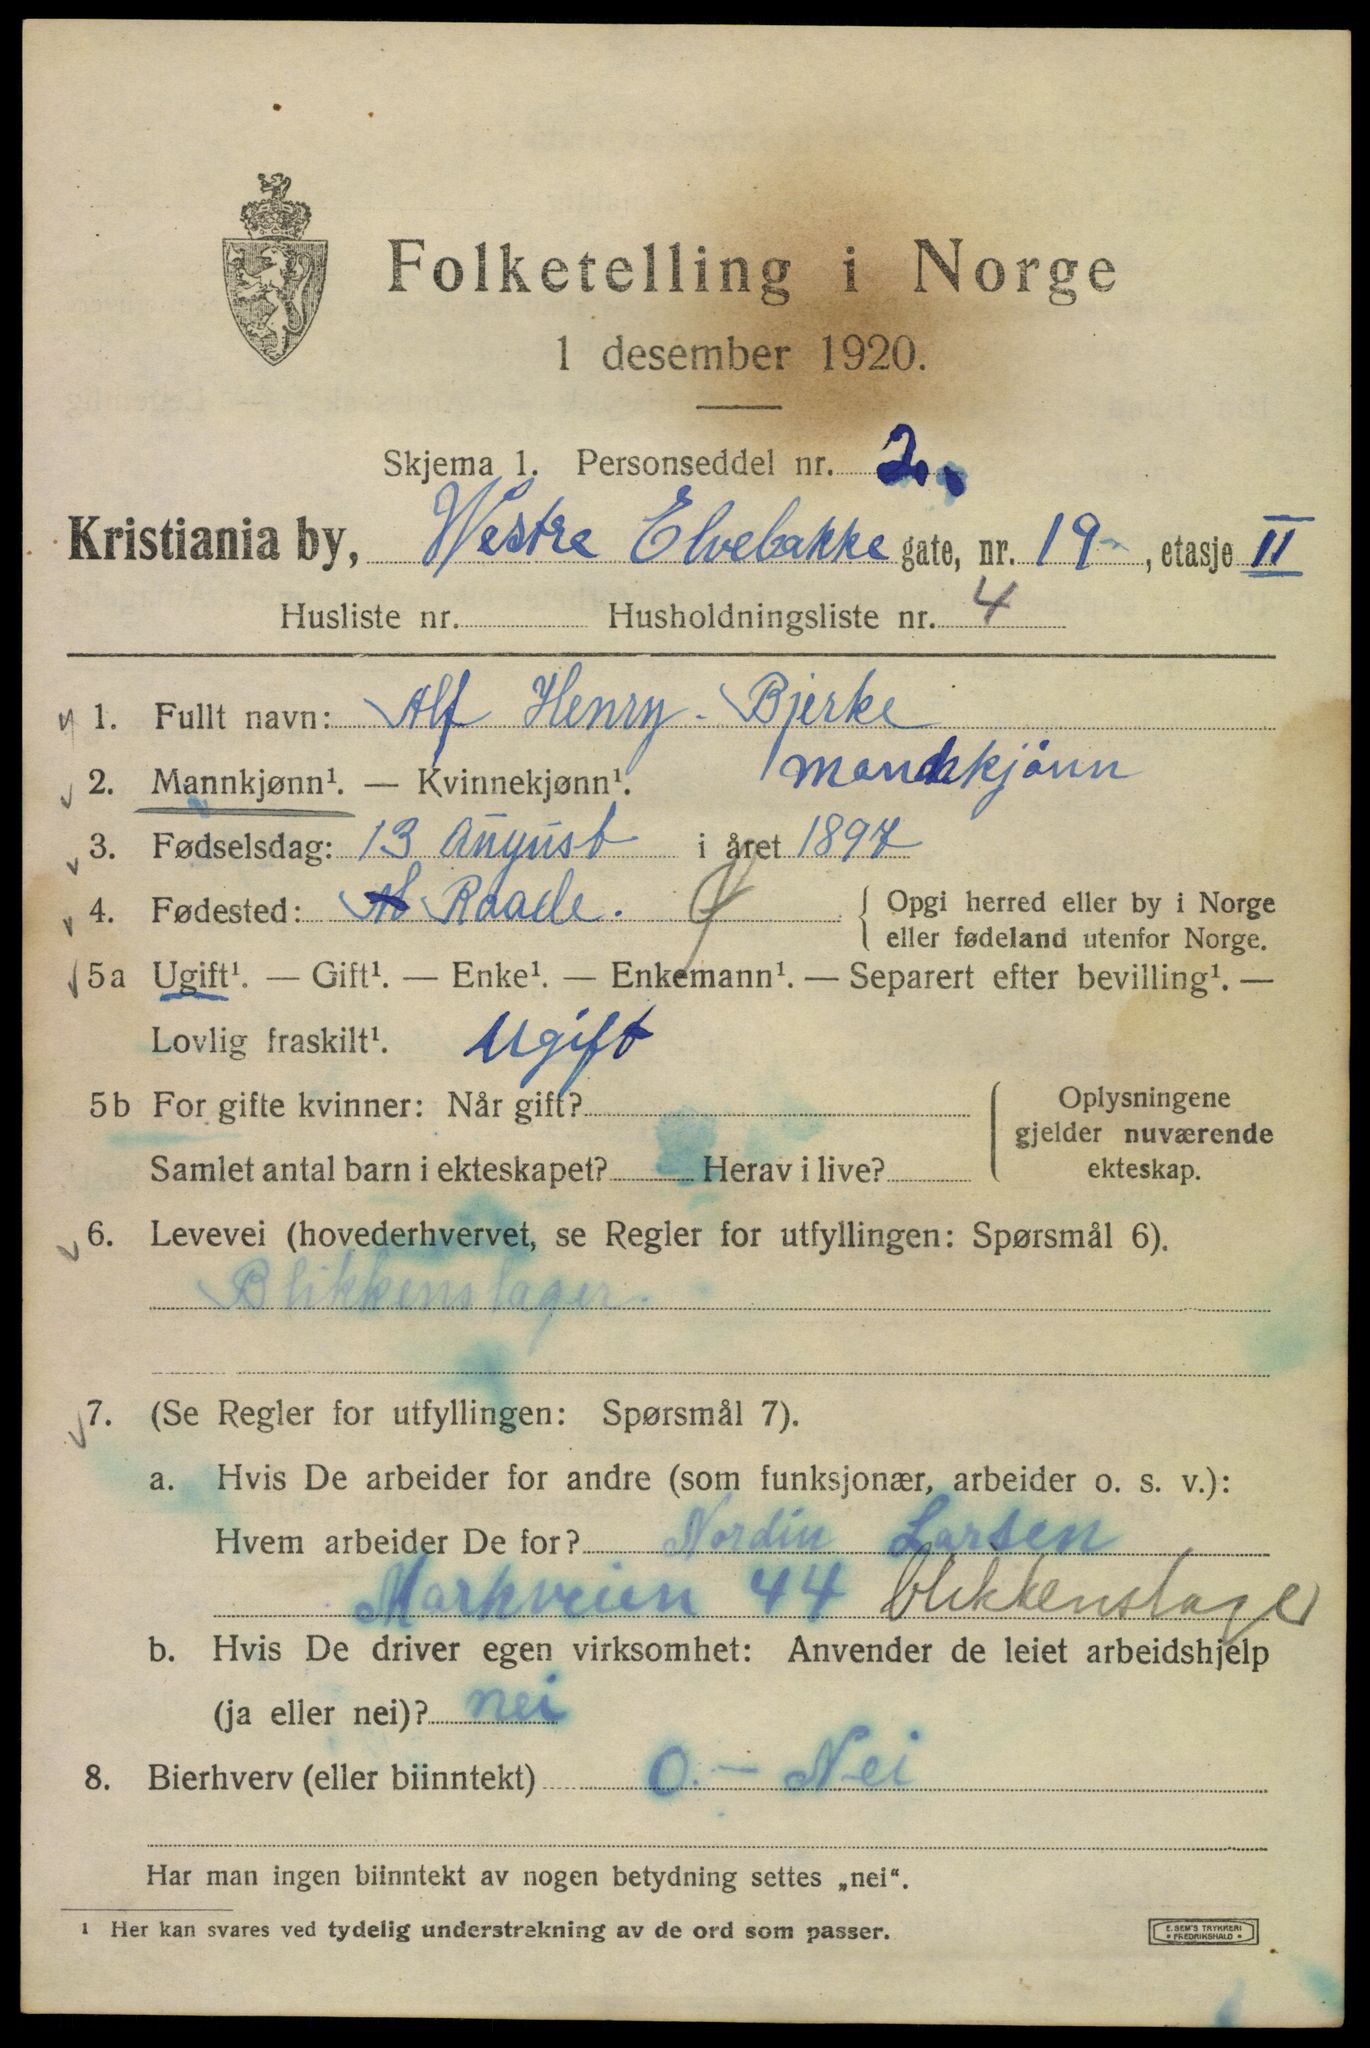 Folketelling i Norge
1 desember 1920.
Skjema 1. Personseddel nr. 2.
Kristiania by, Westre Elvebakke gate, nr. 19, etasje II
Husliste nr. Husholdningsliste nr. 4
1. Fullt navn: Alf Henry Bjerke
2. Mannkjønn¹. — Kvinnekjønn¹. mandkjönn
3. Fødselsdag: 13 August i året 1897
4. Fødested: Raade. { Opgi herred eller by i Norge
eller fødeland utenfor Norge.
5a Ugift¹. — Gift¹. — Enke¹. — Enkemann¹. — Separert efter bevilling¹. —
Lovlig fraskilt¹. Ugift
5b For gifte kvinner: Når gift? { Oplysningene
gjelder nuværende
Samlet antal barn i ekteskapet? Herav i live? ekteskap.
6. Levevei (hovederhvervet, se Regler for utfyllingen: Spørsmål 6).
Blikkenslager.
7. (Se Regler for utfyllingen: Spørsmål 7).
a. Hvis De arbeider for andre (som funksjonær, arbeider o. s. v.):
Hvem arbeider De for? Nordin Larsen
Markveien 44 blikkenslager
b. Hvis De driver egen virksomhet: Anvender de leiet arbeidshjelp
(ja eller nei)? nei
8. Bierhverv (eller biinntekt) 0. — Nei
Har man ingen biinntekt av nogen betydning settes „nei“.
¹ Her kan svares ved tydelig understrekning av de ord som passer.
E. SEM'S TRYKKERI
• FREDRIKSHALD •